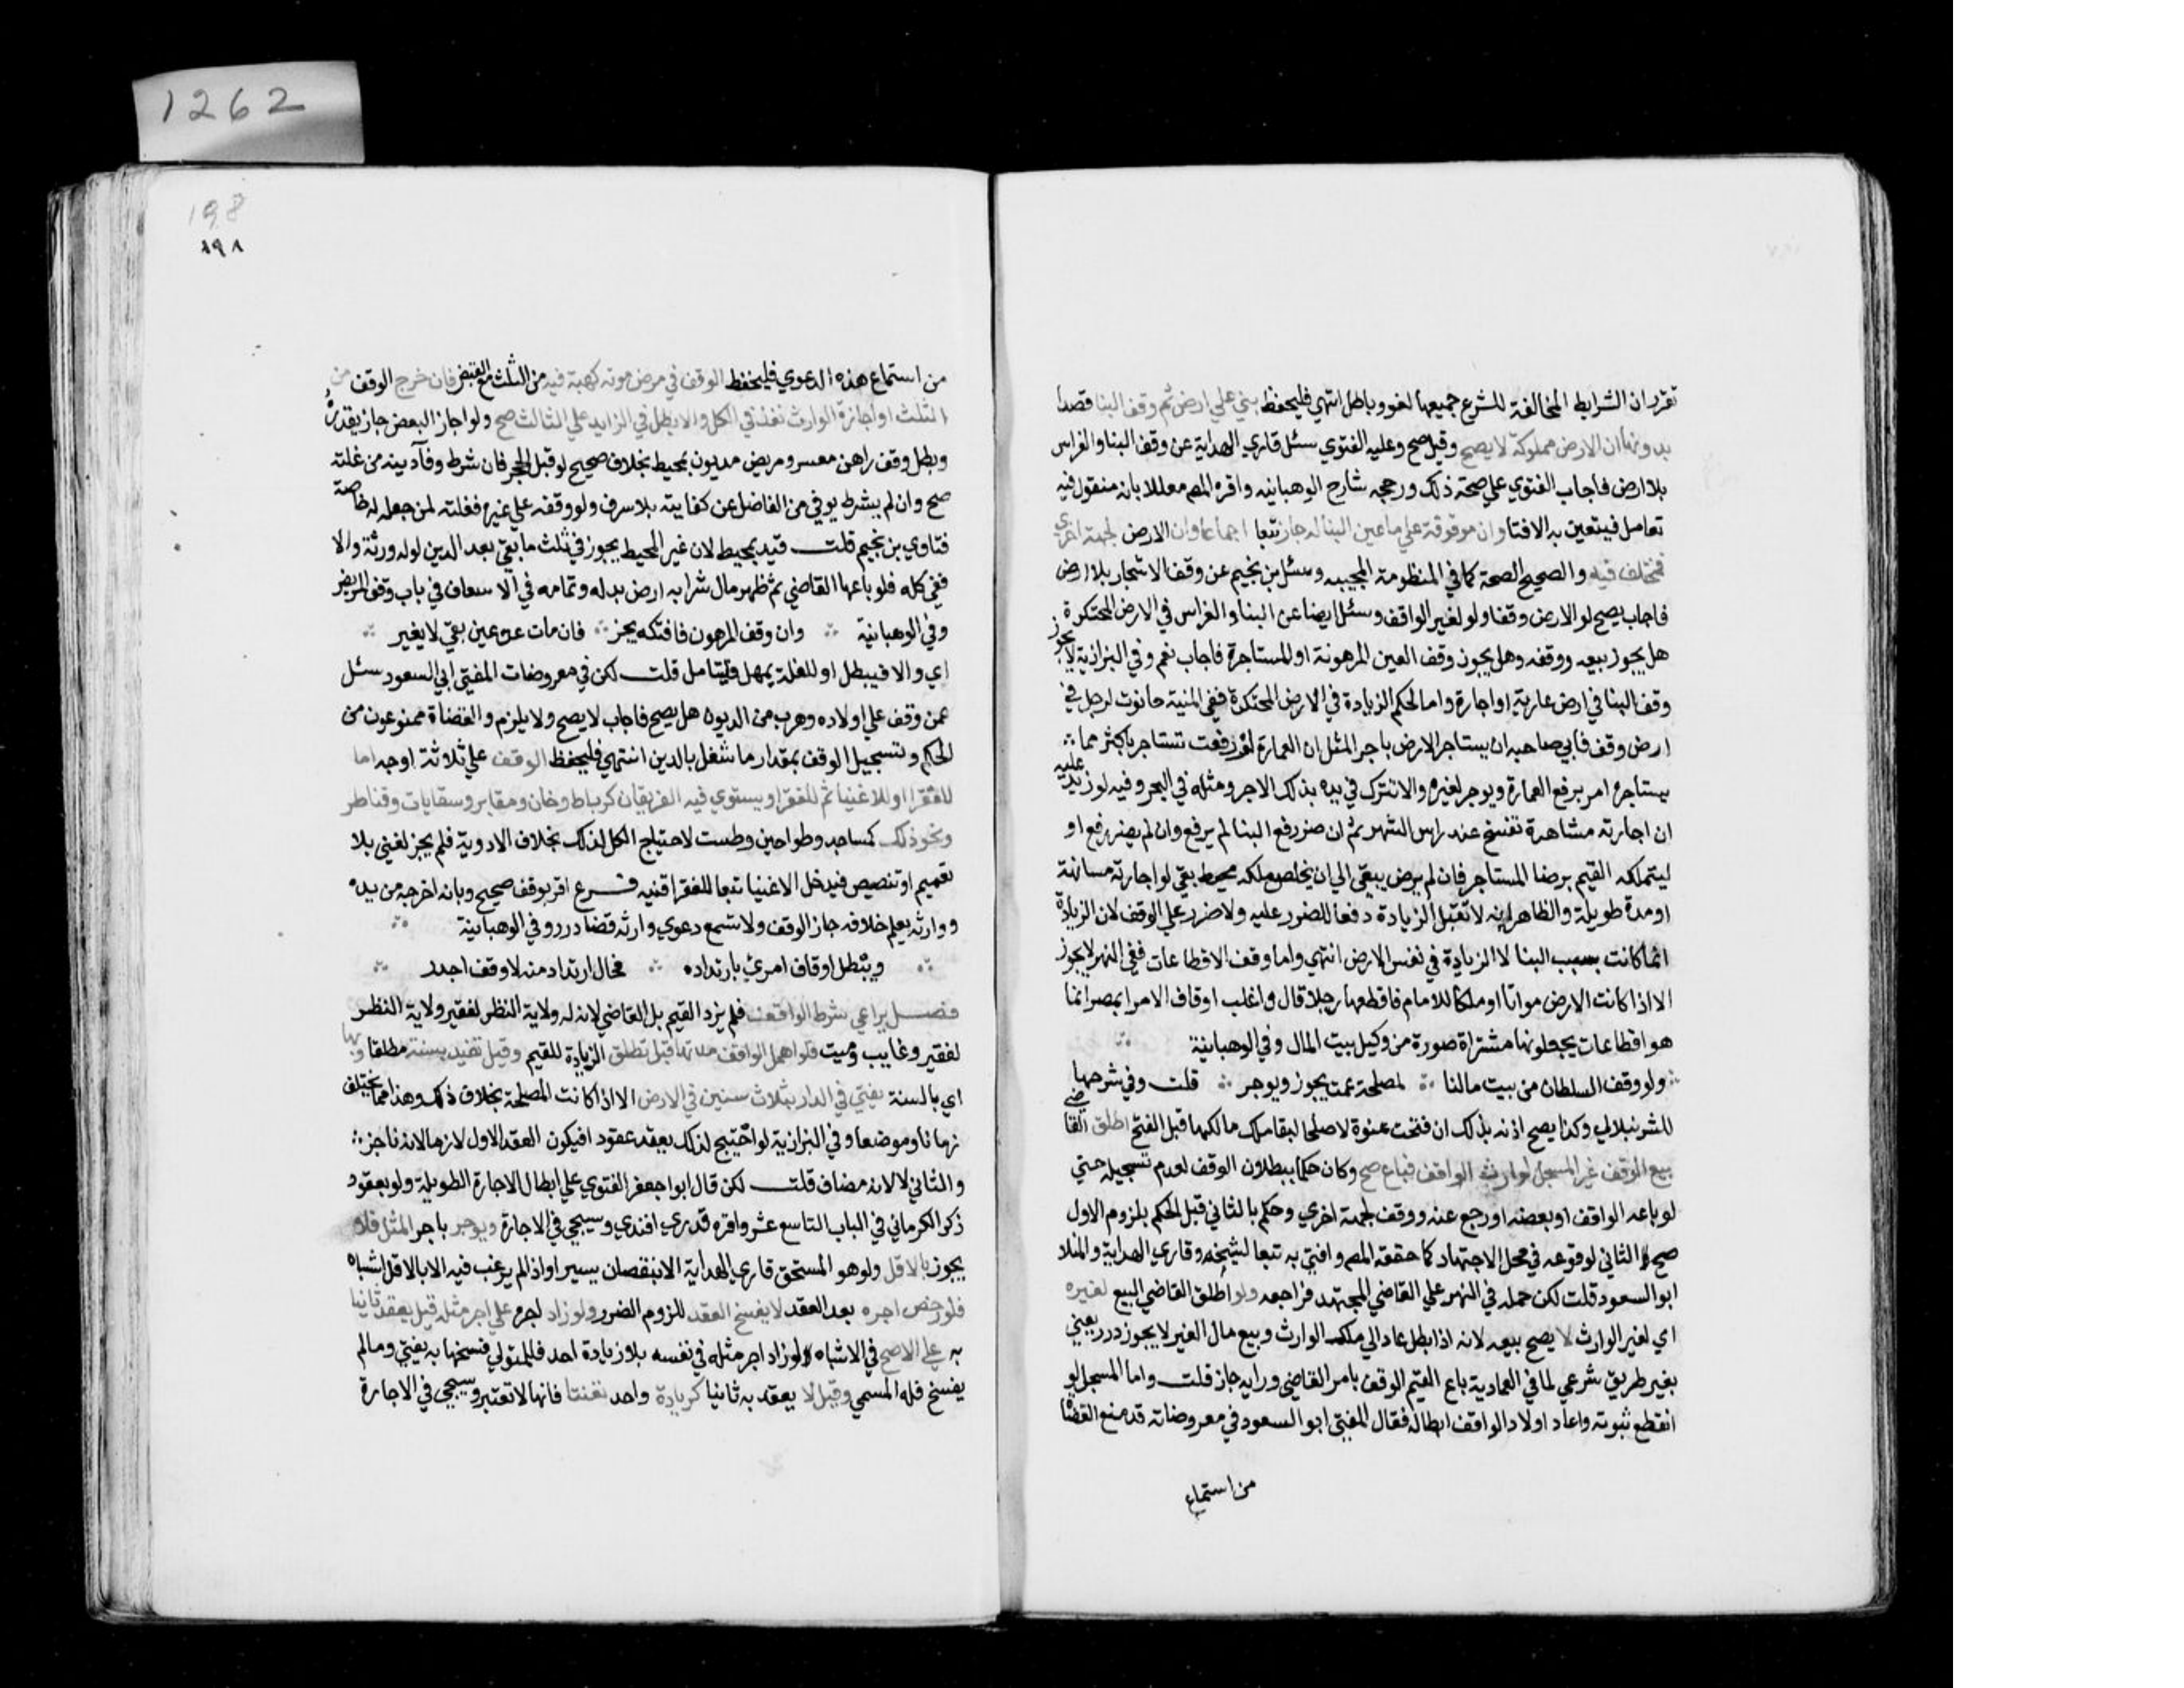 1262
تقرر ان الشرايط المخالفة للشرع جميعها لغو وباطل انتهي فليحفظ بني علي ارض ثم وقف البنا قصدا
بدونها ان الارض مملوكة لا يصح وقيل صح وعليه الفتوي سئل قاري الهداية عن وقف البنا والغراس
بلا ارض فاجاب الفتوي علي صحة ذلك ورجحه شارح الوهبانيه واقره المص معللا بانه منقول فيه
تعامل فيتعين به الافتا وان موقوفة علي ما عين البنا له جاز تبعا اجماعا وان الارض لجهة اخري
فمختلف فيه والصحيح الصحة كما في المنظومة المحبيه وسئل بن نجيم عن وقف الاشجار بلا ارض
فاجاب يصح لو الارض وقفا ولو لغير الواقف وسئل ايضا عن البنا والغراس في الارض المحتكرة
هل يجوز بيعه ووقفه وهل يجوز وقف العين المرهونة او المستاجرة فاجاب نعم وفي البزازية لا يجوز
وقف البنا في ارض عارية او اجارة واما لحكم الزيادة في الارض المحتكرة ففي المنية حانوت لرجل في
ارض وقف فابي صاحبه ان يستاجر الارض باجر المثل ان العمارة لو رفعت تستاجر باكثر مما
يستاجره امر برفع العمارة ويوجر لغيره والا تترك في يده بذلك الاجر ومثله في البحر وفيه لو زيد عليه
ان اجارته مشاهرة تفسخ عند راس الشهر ثم ان ضر رفع البنا لم يرفع وان لم يضر رفع او
ليتملكه القيم برضا المستاجر فان لم يرض يبقي الي ان يخلص ملكه محيط بقي لو اجارته مسانهة
او مدة طويلة والظاهر انه لا تقبل الزيادة دفعا للضرر عليه ولا ضرر علي الوقف لان الزيادة
انما كانت بسبب البنا لا الزيادة في نفس الارض انتهي واما وقف الاقطاعات ففي النهر لا يجوز
الا اذا كانت الارض مواتا او ملكا للامام فاقطعها رجلا قال واغلب اوقاف الامرا بمصر انما
هو اقطاعات يجعلونها مشتراة صورة من وكيل بيت المال وفي الوهبانية
ولو وقف السلطان من بيت مالنا لمصلحة عمت يجوز ويوجر قلت وفي شرحها
للشرنبلالي وكذا يصح اذنه بذلك ان فتحت عنوة لا صلحا لبقا ملك مالكها قبل الفتح اطلق القاضي
بيع الوقف غير المسجل لوارث الواقف فباع صح وكان حكما ببطلان الوقف لعدم تسجيله حتي
لو باعه الواقف او بعضه او رجع عنه ووقف لجهة اخري وحكم بالثاني قبل الحكم بلزوم الاول
صح الثاني لوقوعه في محل الاجتهاد كما حققه المص وافتي به تبعا لشيخه وقاري الهداية والمنلا
ابو السعود قلت لكن حمله في النهر علي القاضي المجتهد فراجعه ولو اطلق القاضي البيع لغيره
اي لغير الوارث لا يصح بيعه لانه اذا بطل عاد الي ملك الوارث وبيع مال الغير لا يجوز درر يعني
بغير طريق شرعي لما في العمادية باع القيم الوقف بامر القاضي ورايه جاز قلت واما المسجل لو
انقطع ثبوته واعاد اولاد الواقف ابطاله فقال المفتي ابو السعود في معروضاته قد منع القضاة
من استماع
198
١٩٨
من استماع هذه الدعوي فليحفظ الوقف في مرض موته كهبة فيه من الثلث مع القبض فان خرج الوقف من
الثلث او اجازة الوارث نفذ في الكل والا بطل في الزايد علي الثالث صح ولو اجاز البعض جاز بقدره
وبطل وقف راهن معسر ومريض مديون بمحيط بخلاف صحيح لو قبل الحجر فان شرط وفآ دينه من غلته
صح وان لم يشرط يوفي من الفاضل عن كفايته بلا سرف ولو وقفه علي غيره فغلته لمن جعله له خاصة
فتاوي بن نجيم قلت قيد بمحيط لان غير المحيط يجوز في ثلث ما بقي بعد الدين لو له ورثة والا
ففي كله فلو باعها القاضي ثم ظهر مال شرا به ارض بدله وتمامه في الاسعاف في باب وقف المريض
وفي الوهبانية وان وقف المرهون فافتكه يجز فان مات عن عين بقي لا يغير
اي والا فيبطل او للغلة يمهل فليتامل قلت لكن في معروضات المفتي ابي السعود سئل
عمن وقف علي اولاده وهرب من الديون هل يصح فاجاب لا يصح ولا يلزم والقضاة ممنوعون من
الحكم وتسجيل الوقف بمقدار ما شغل بالدين انتهي فليحفظ الوقف علي ثلاثة اوجه اما
للفقرا او للاغنيا ثم للفقرا ويستوي فيه الفريقان كرباط وخان ومقابر وسقايات وقناطر
ونحو ذلك كمساجد وطواحين وطست لاحتياج الكل لذلك بخلاف الادوية فلم يجز لغني بلا
تعميم او تنصيص فيدخل الاغنيا تبعا للفقرا قنيه فرع اقر بوقف صحيح وبانه اخرجه من يده
ووارثه يعلم خلافه جاز الوقف ولا تسمع دعوي وارثه قضا درر وفي الوهبانية
ويبطل اوقاف امرئ بارتداده فحال ارتداد منه لا وقف اجدر
فصل يراعي شرط الواقف فلم يزد القيم بل القاضي لانه له ولاية النظر لفقير ولاية النظر
لفقير وغايب وميت فلو اهمل الواقف مدتها قيل تطلق الزيادة للقيم وقيل تقيد بسنة مطلقا وبها
اي بالسنة يفتي في الدار بثلاث سنين في الارض الا اذا كانت المصلحة بخلاف ذلك وهذا مما يختلف
زمانا وموضعا وفي البزازية لو احتيج لذلك يعقد عقود افيكون العقد الاول لازما لانه ناجز
والثاني لا لانه مضاف قلت لكن قال ابو اجعفر الفتوي علي ابطال الاجارة الطويلة ولو بعقود
ذكر الكرماني في الباب التاسع عشر واقره قدري افندي وسيجي في الاجارة ويوجر باجر المثل فلا
يجوز بالاقل ولو هو المستحق قاري الهداية الا بنقصان يسير او اذا لم يرغب فيه الا بالاقل اشباه
فلو رخص اجره بعد العقد لا يفسخ العقد للزوم الضرر ولو زاد اجره علي اجر مثله قيل يعقد ثانيا
به علي الاصح في الاشباه لو زاد اجر مثله في نفسه بلا زيادة احد فللمتولي فسخها به يفتي ومالم
يفسخ فله المسمي وقيل لا يعقد به ثانيا كزيادة واحد تعنتا فانها لا تعتبر وسيجي في الاجارة